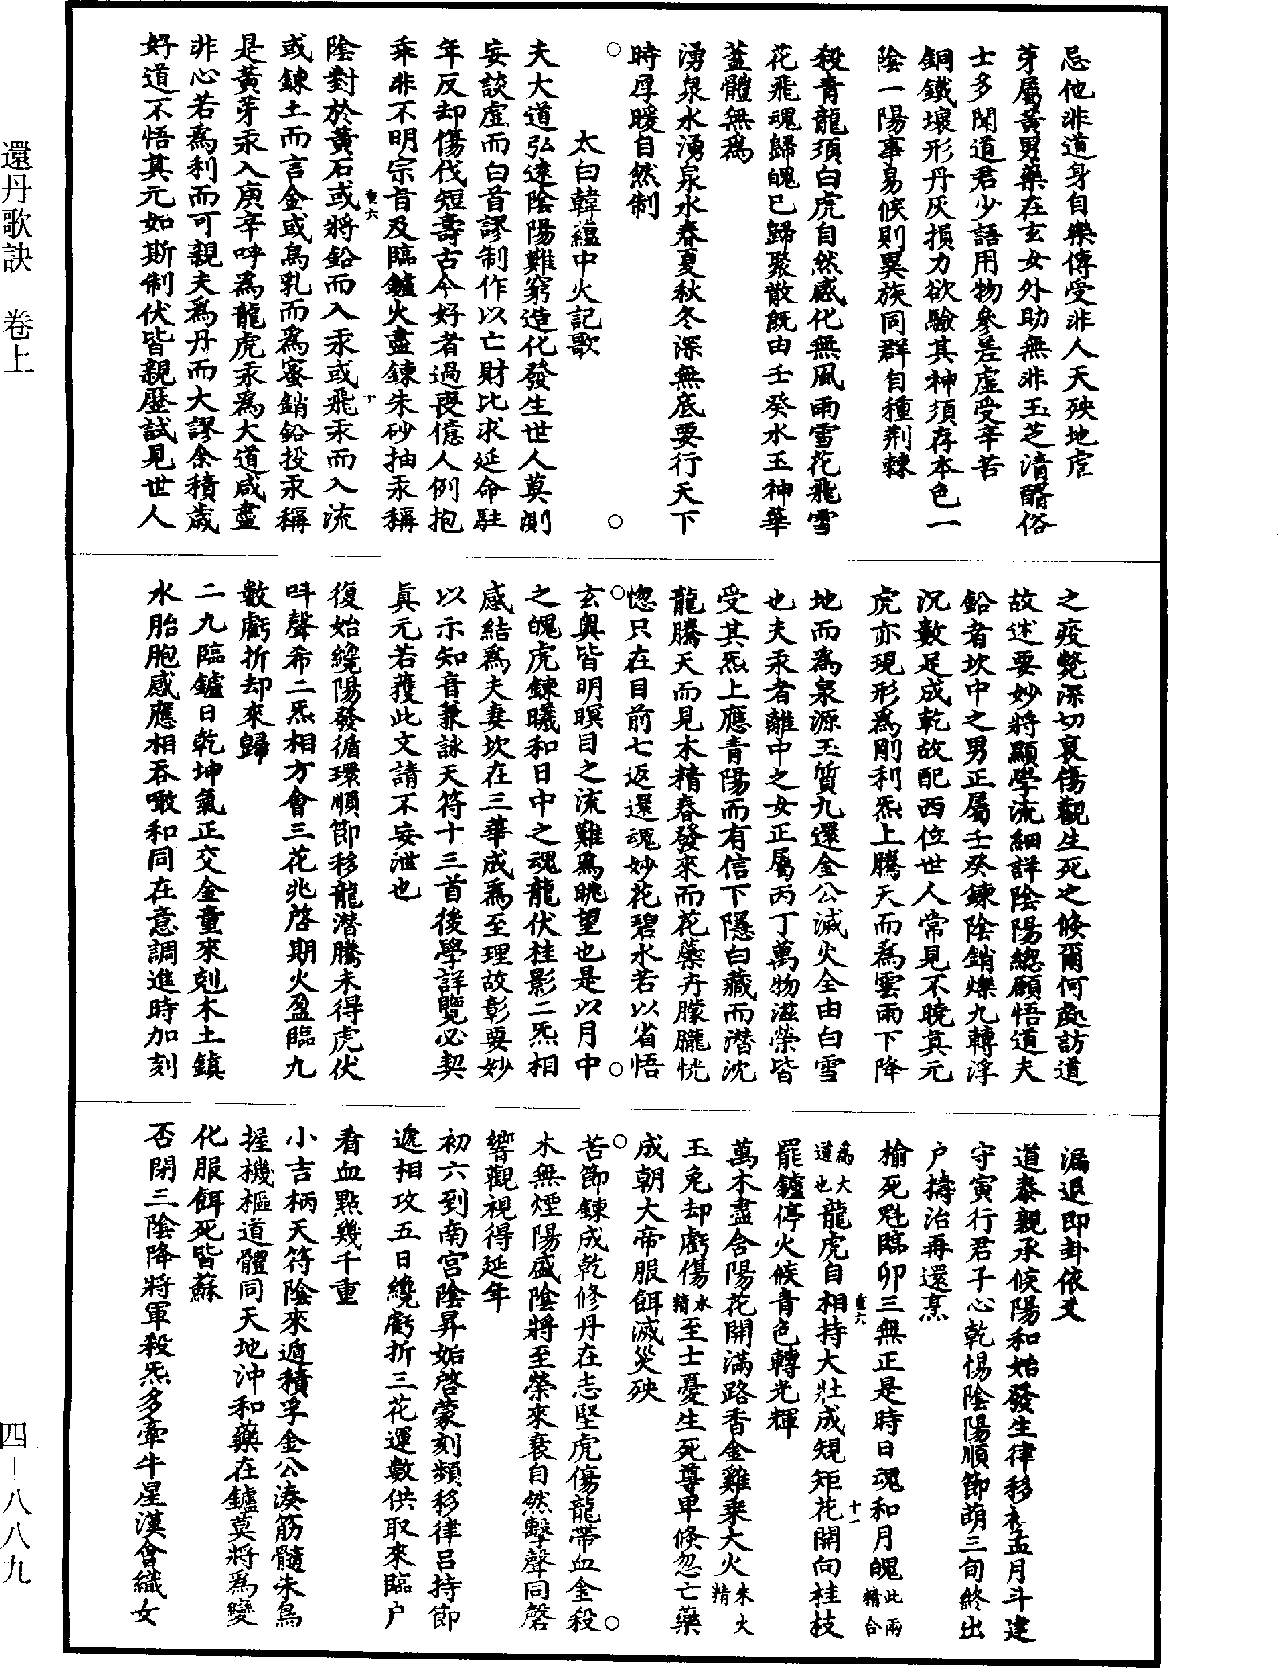 還丹歌訣　卷上
四—八八九
忌他非道身自樂傳受非人天殃地虐
芽屬黃男藥在玄女外助無非玉芝清醑俗
士多聞道君少語用物參差虛受辛苦
銅鐵壞形丹灰損力欲驗其神須存本色一
陰一陽事易候則異族同群自種荆棘
殺青龍須白虎自然感化無風雨雪花飛雪
花飛魂歸魄已歸聚散既由壬癸水玉神華
蓋體無爲
湧泉水湧泉水春夏秋冬深無底要行天下
時厚暖自然制
太白韓蘊中火記歌
夫大道弘達陰陽難窮造化發生世人莫測
妄談虛而白首謬制作以亡財比求延命駐
年反却傷伐短壽古今好者過喪億人例抱
乖非不明宗旨及臨鑪火盡鍊朱砂抽汞稱
陰對於黃石或將鉛而入汞或飛汞而入流
或鍊土而言金或烏乳而爲蜜銷鉛投汞稱
是黃芽汞入庚辛呼爲龍虎汞爲大道咸盡
非心若爲利而可親夫爲丹而大謬余積歲
好道不悟其元如斯制伏皆親歷試見世人
之疲斃深切哀傷觀生死之倏爾何處訪道
故述要妙將顯學流細詳陰陽總願悟道夫
鉛者坎中之男正屬壬癸鍊陰銷爍九轉浮
沉數足成乾故配西位世人常見不曉真元
虎亦現形爲剛利炁上騰天而爲雲雨下降
地而爲泉源玉質九還金公滅火全由白雪
也夫汞者離中之女正屬丙丁萬物滋榮皆
受其炁上應青陽而有信下隱白藏而潛沈
龍騰天而見木精春發來而花藥卉朦朧恍
惚只在目前七返還魂妙花碧水若以省悟
玄奥皆明瞑目之流難爲眺望也是以月中
之魄虎鍊曦和日中之魂龍伏桂影二炁相
感結爲夫妻坎在三華成爲至理故彰要妙
以示知音兼詠天符十三首後學詳覽必契
真元若獲此文請不妄泄也
復始纔陽發循環順節移龍潜騰未得虎伏
吽聲希二炁相方會三花兆啓期火盈臨九
數虧折却來歸
二九臨鑪日乾坤氣正交金童來剋木土鎮
水胎胞感應相吞噉和同在意調進時加刻
漏退即卦依爻
道泰親承候陽和始發生律移衣孟月斗建
守寅行君子心乾惕陰陽順節萌三旬終出
户擣治再還烹
榆死魁臨卯三無正是時日魂和月魄此兩精合
爲大道也龍虎自相持大壯成規矩花開向桂枝
罷鑪停火候青色轉光輝
萬木盡含陽花開滿路香金雞乘大火朱火精
玉兔却虧傷水精至士憂生死尊卑倏忽亡藥
成朝大帝服餌滅災殃
苦節鍊成乾修丹在志堅虎傷龍帶血金殺
木無煙陽盛陰將至榮來衰自然擊聲同磬
響觀視得延年
初六到南宫陰昇姤啓蒙刻頻移律吕持節
遞相攻五日纔虧折三花運數供取來臨户
看血點幾千重
小吉柄天符陰來遁積孚金公湊筋髓朱鳥
握機樞道體同天地沖和藥在鑪莫將爲變
化服餌死皆蘇
否閉三陰降將軍殺炁多牽牛星漢會織女